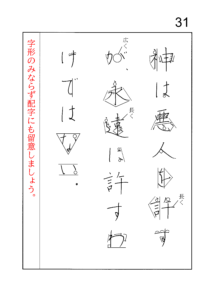 31
神は悪人を許す
長く
が、永遠に許すわ
広く
長く
けではない。
字形のみならず配字にも留意しましょう。